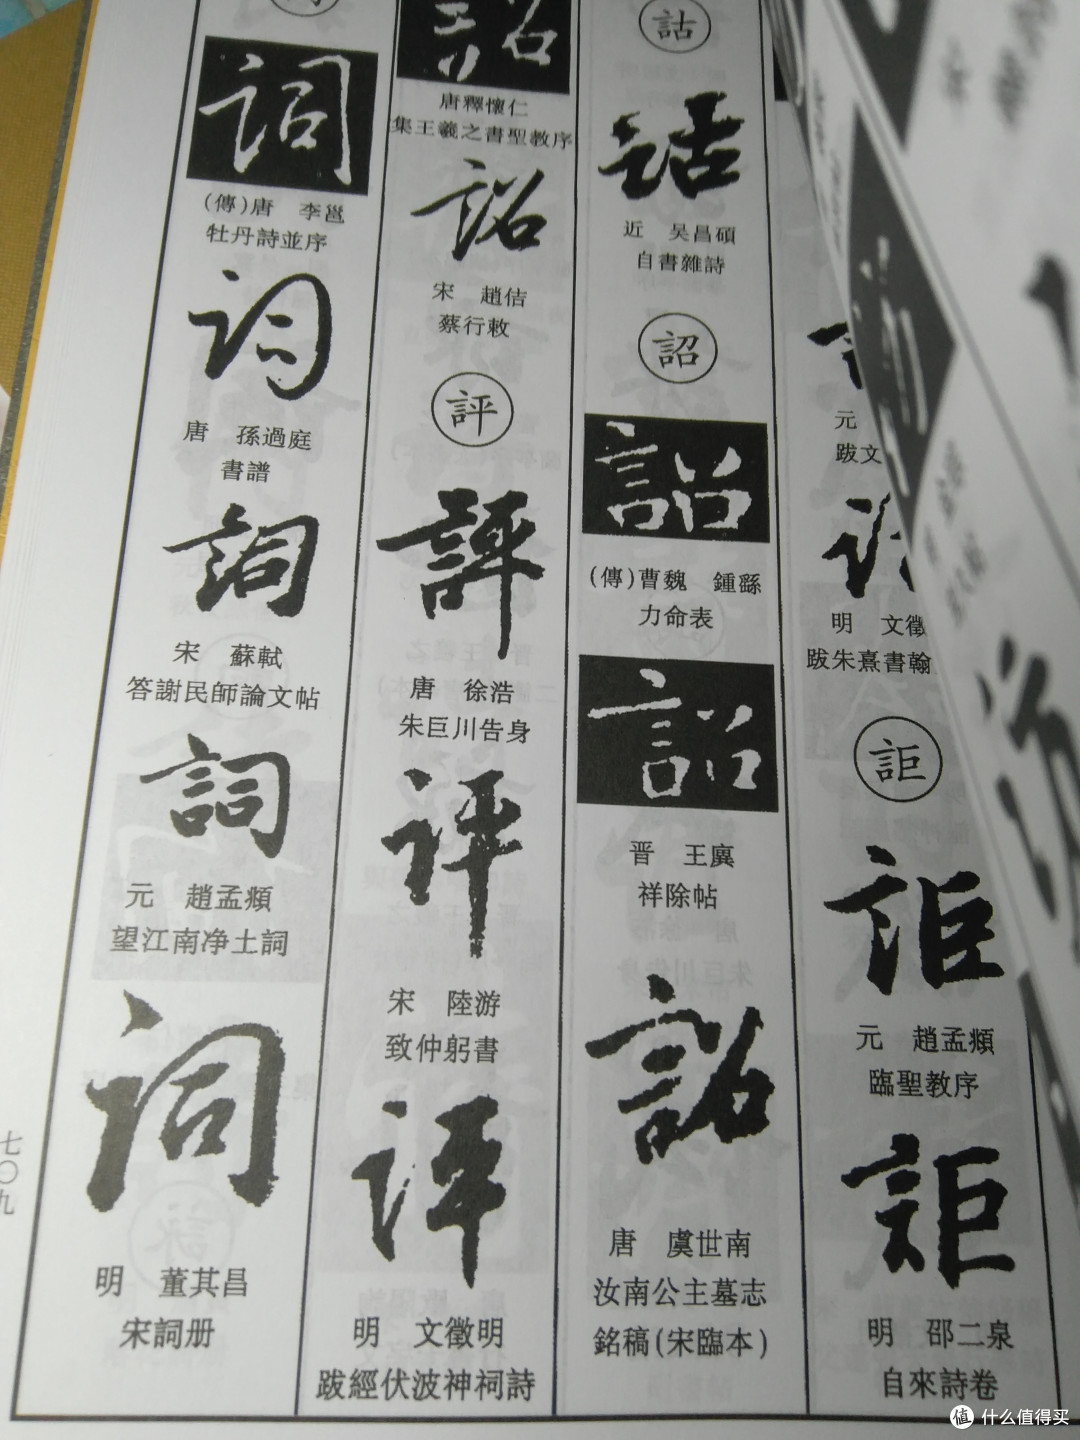 詁
詁
近 吴昌碩
自書雜詩
詔
詔
(傳)曹魏 鍾繇
力命表
詔
晋 王廙
祥除帖
詔
唐 虞世南
汝南公主墓志
銘稿(宋臨本)
元
跋文
明 文徵
跋朱熹書翰
詎
詎
元 趙孟頫
臨聖教序
詎
明 邵二泉
自來詩卷
詔
唐釋懷仁
集王羲之書聖教序
詔
宋 趙佶
蔡行敕
評
評
唐 徐浩
朱巨川告身
評
宋 陸游
致仲躬書
評
明 文徵明
跋經伏波神祠詩
詞
(傳)唐 李邕
牡丹詩並序
詞
唐 孫過庭
書譜
詞
宋 蘇軾
答謝民師論文帖
詞
元 趙孟頫
望江南净土詞
詞
明 董其昌
宋詞册
七〇九
值 什么值得买